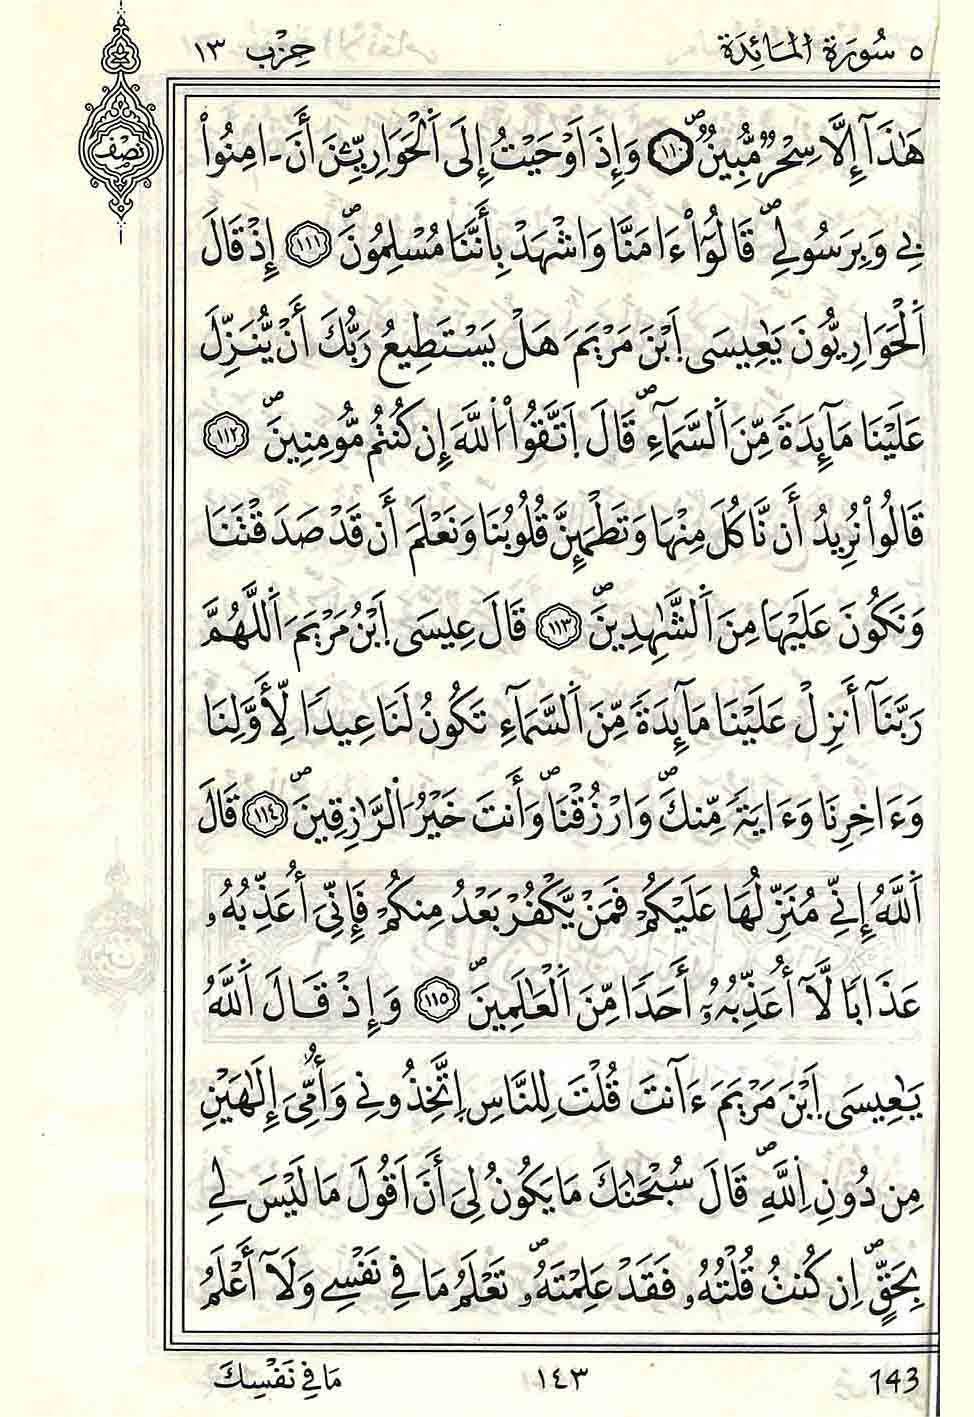 ٥ سُورَةُ المَائِدَة حِزْب ١٣
نصف
هَٰذَآ إِلَّا سِحْرٞ مُّبِينٞۖ ١١٠ وَإِذَ اَوْحَيْتُ إِلَى اَ۬لْحَوَارِيِّـۧنَ أَنَ اٰمِنُواْ
بِے وَبِرَسُولِےۖ قَالُوٓاْ ءَامَنَّا وَاشْهَدْ بِأَنَّنَا مُسْلِمُونَۖ ١١١ إِذْ قَالَ
اَ۬لْحَوَارِيُّونَ يَٰعِيسَى اَ۪بْنَ مَرْيَمَ هَلْ يَسْتَطِيعُ رَبُّكَ أَنْ يُّنَزِّلَ
عَلَيْنَا مَآئِدَةٗ مِّنَ اَ۬لسَّمَآءِۖ قَالَ اَ۪تَّقُواْ اُ۬للَّهَ إِن كُنتُم مُّومِنِينَۖ ١١٢
قَالُواْ نُرِيدُ أَن نَّاكُلَ مِنْهَا وَتَطْمَئِنَّ قُلُوبُنَا وَنَعْلَمَ أَن قَدْ صَدَقْتَنَا
وَنَكُونَ عَلَيْهَا مِنَ اَ۬لشَّٰهِدِينَۖ ١١٣ قَالَ عِيسَى اَ۪بْنُ مَرْيَمَ اَ۬للَّهُمَّ
رَبَّنَآ أَنزِلْ عَلَيْنَا مَآئِدَةٗ مِّنَ اَ۬لسَّمَآءِ تَكُونُ لَنَا عِيدٗا لِّأَوَّلِنَا
وَءَاخِرِنَا وَءَايَةٗ مِّنكَۖ وَارْزُقْنَاۖ وَأَنتَ خَيْرُ اُ۬لرَّٰزِقِينَۖ ١١٤ قَالَ
اَ۬للَّهُ إِنِّے مُنَزِّلُهَا عَلَيْكُمْ فَمَنْ يَّكْفُرْ بَعْدُ مِنكُمْ فَإِنِّيَ أُعَذِّبُهُۥ
عَذَابٗا لَّآ أُعَذِّبُهُۥٓ أَحَدٗا مِّنَ اَ۬لْعَٰلَمِينَۖ ١١٥ وَإِذْ قَالَ اَ۬للَّهُ
يَٰعِيسَى اَ۪بْنَ مَرْيَمَ ءَآنتَ قُلْتَ لِلنَّاسِ اِ۪تَّخِذُونِے وَأُمِّيَ إِلَٰهَيْنِ
مِن دُونِ اِ۬للَّهِۖ قَالَ سُبْحَٰنَكَ مَا يَكُونُ لِيَ أَنَ اَقُولَ مَا لَيْسَ لِے
بِحَقٍّۖ اِن كُنتُ قُلْتُهُۥ فَقَدْ عَلِمْتَهُۥۖ تَعْلَمُ مَا فِے نَفْسِے وَلَآ أَعْلَمُ
مَا فِي نَفْسِكَ ١٤٣ 143